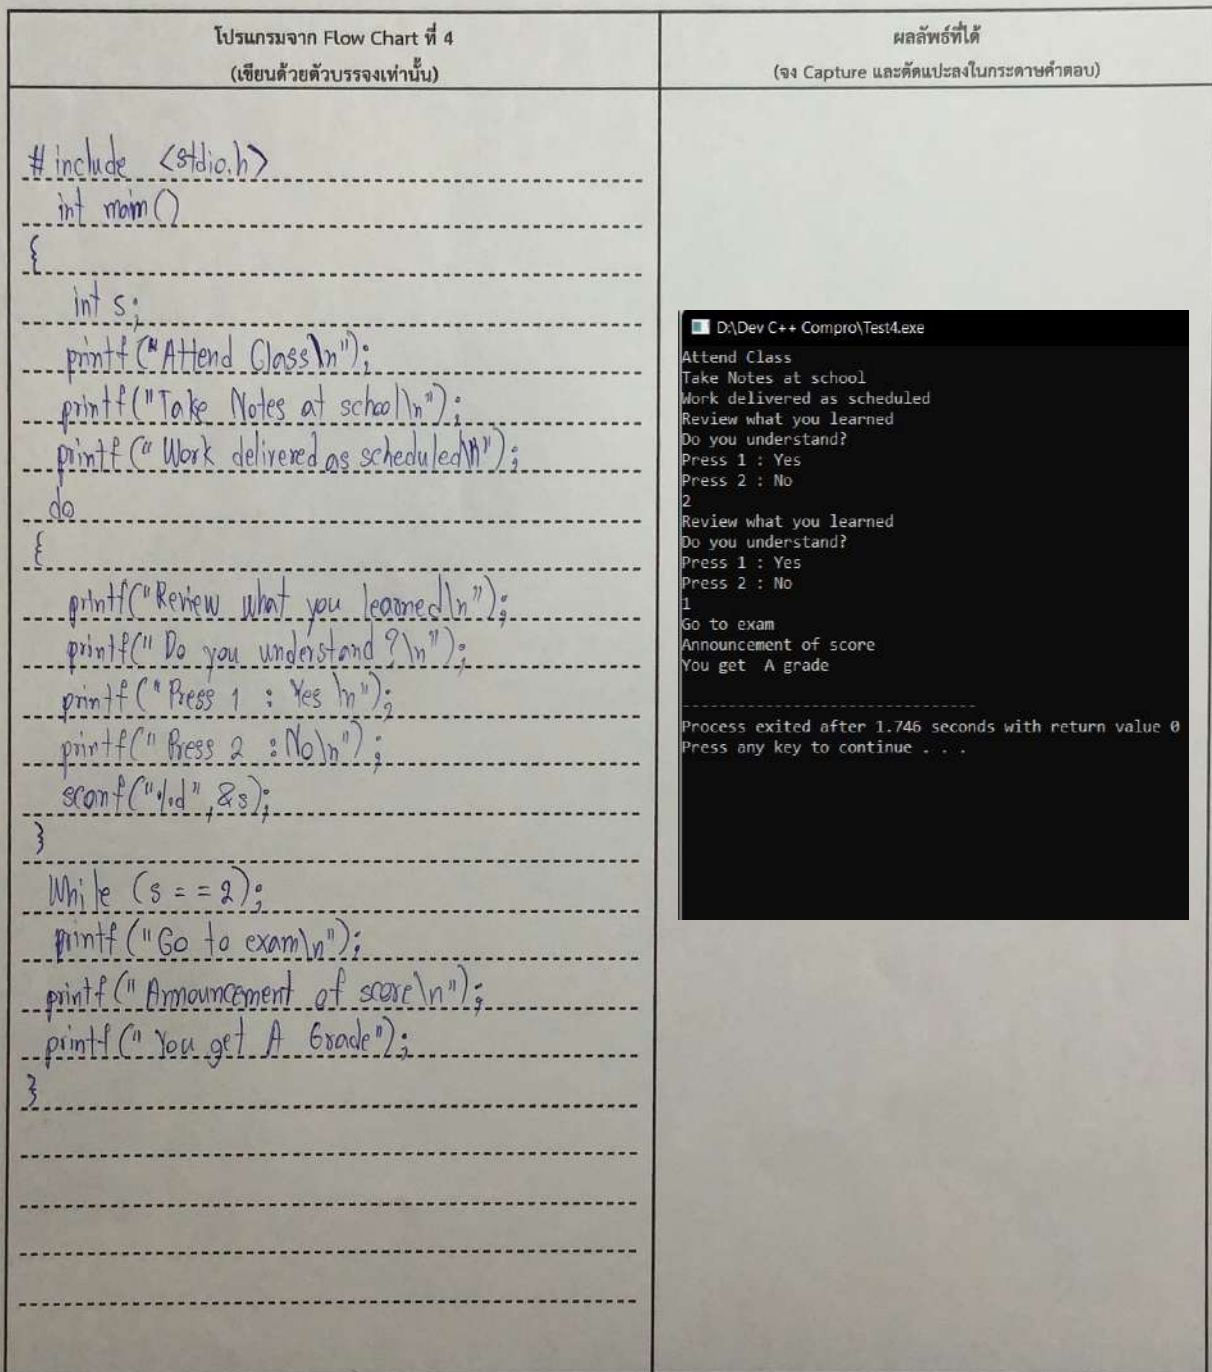 โปรแกรมจาก Flow Chart ที่ 4
(เขียนด้วยตัวบรรจงเท่านั้น)
# include <stdio.h>
int main()
{
int s;
printf ("Attend Class\n");
printf("Take Notes at school\n");
printf (" Work delivered as scheduled\n");
do
{
printf("Review what you learned\n");
printf(" Do you understand ?\n");
printf ("Press 1 : Yes \n");
printf(" Press 2 : No\n");
scanf("%d",&s);
}
While (s = = 2);
printf ("Go to exam\n");
printf (" Announcement of score\n");
printf (" You get A Grade");
}
ผลลัพธ์ที่ได้
(จง Capture และตัดแปะลงในกระดาษคำตอบ)
D:\Dev C++ Compro\Test4.exe
Attend Class
Take Notes at school
Work delivered as scheduled
Review what you learned
Do you understand?
Press 1 : Yes
Press 2 : No
2
Review what you learned
Do you understand?
Press 1 : Yes
Press 2 : No
1
Go to exam
Announcement of score
You get  A grade
--------------------------------
Process exited after 1.746 seconds with return value 0
Press any key to continue . . .